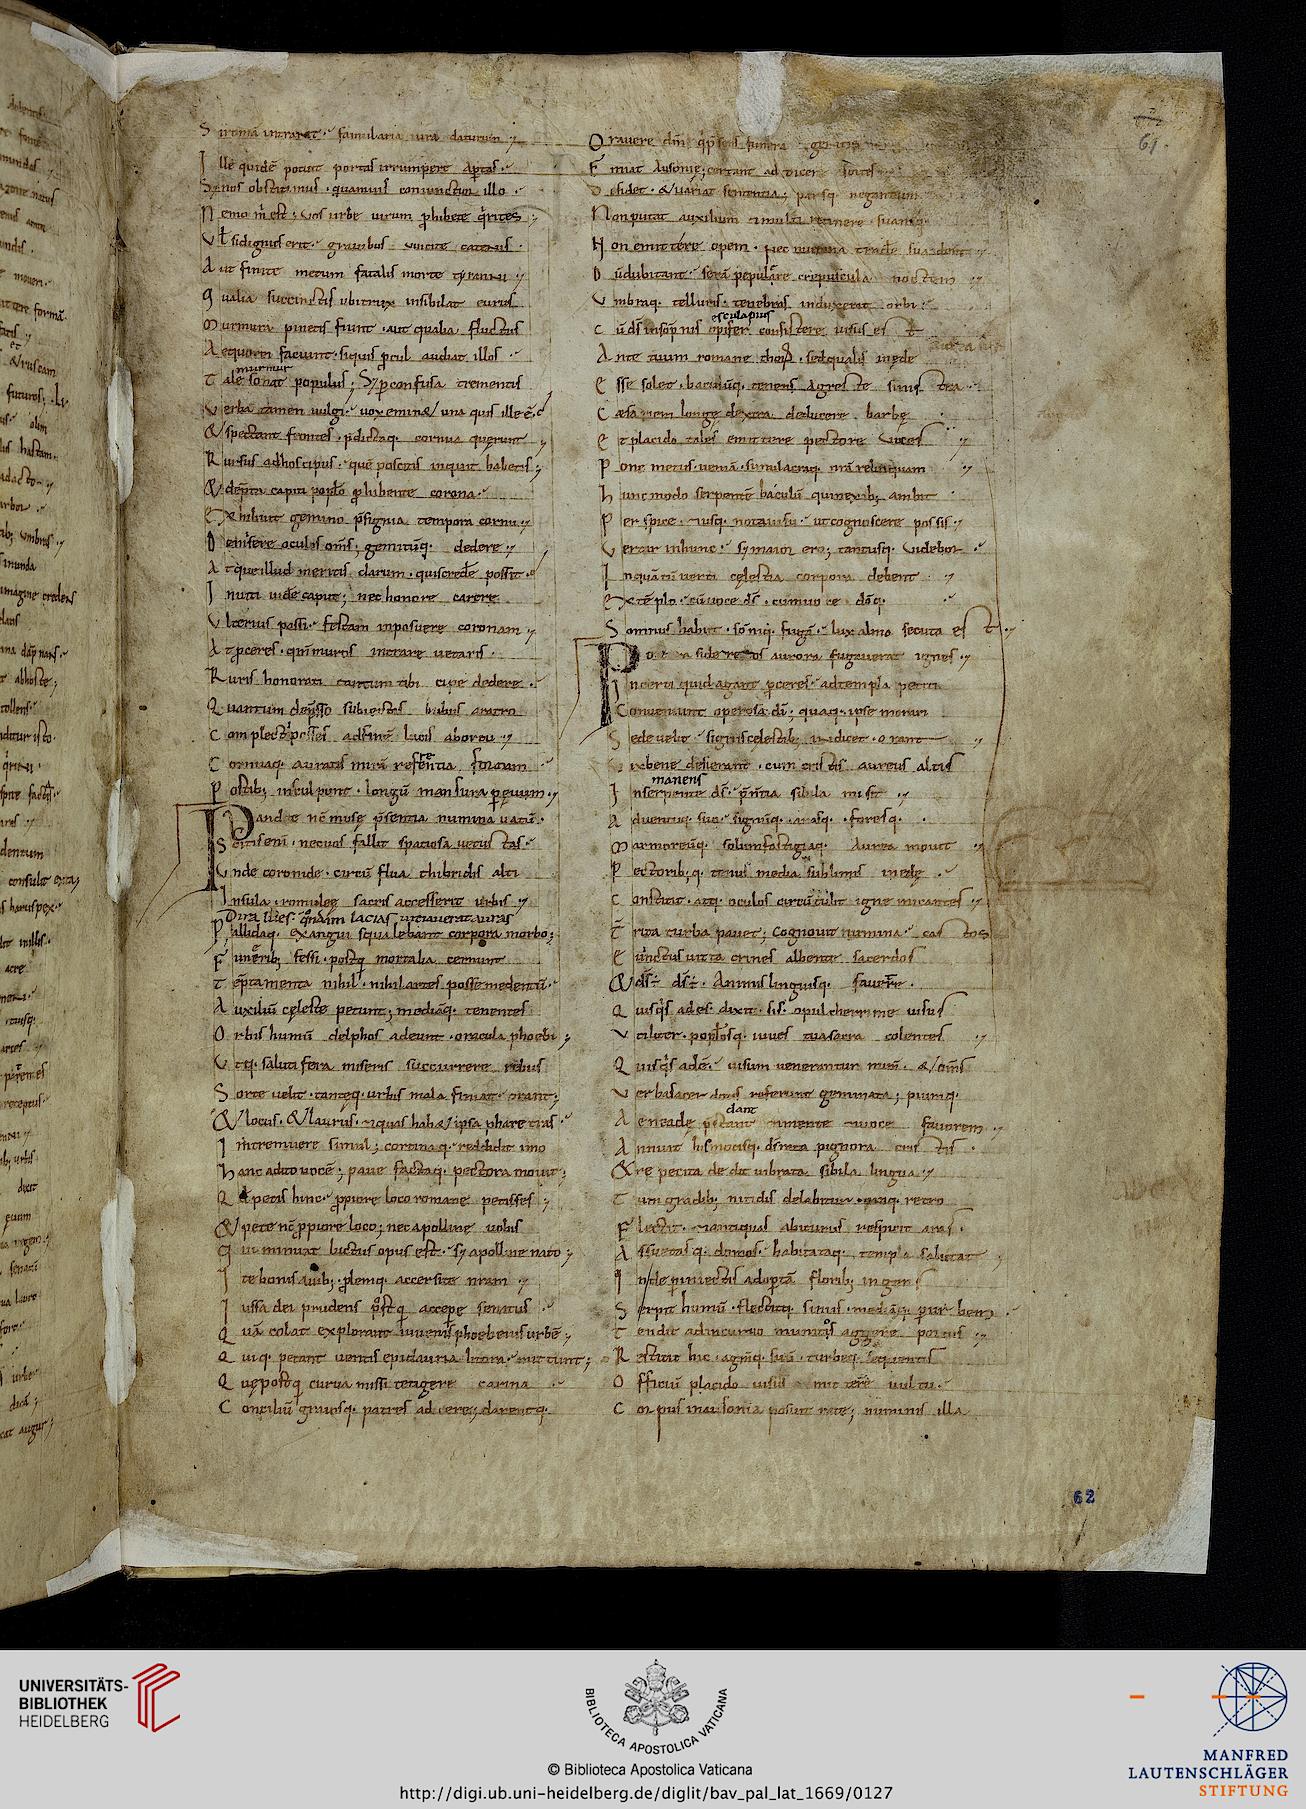 S i romā intrarat famularia iura daturum
I lle quidē potuit portas irrumpere aptas
S; nos obstitimus quamuis coniunctior illo
N emo m̄ est; uos urbe uirum phibete qrites
V l sidignus erit grauibus uincite catenis
A ut finite metum fatalis morte tyranni
Q ualia succinctis ubi trux insibilat eurus
M urmura pinetis fiunt aut qualia fluctus
A equorei faciunt siquis pcul audiat illos
murmur
T ale sonat populus; S; p confusa trementis
V erba tamen uulgi uox emin& una quis ille ē
& spectant frontes pdictaq. cornua querunt
R ursus adhos cipus quē poscitis inquit habetis
& dēpta capiti poplo phibente corona
E xhibuit gemino psignia tempora cornu
D emisere oculos om̄s; gemitūq. dedere
A tque illud meritis clarum quiscrede possit
I nuiti uidē caput; nec honore carere
V lterius passi festam inposuere coronam
A t pceres qm̄ muros intrare uetaris
R uris honorati tantum tibi cipe dedere
Q uantum depsso subiectis bubus aratro
C omplecti posses ad finē lucis ab ortu
C ornuaq. auratis mirā referentia formam
P ostib; insculpunt longū mansura p euum
P andite nc̄ muse psentia numina uatū
S citis enī nec uos fallit spatiosa uetustas
V nde coroniden circū flua thibridis alti
I nsula romulee sacris accesserit urbis
Dira lues qndam lacias uitiauerat auras
P allidaq. exangui squalebant corpora morbo
F unerib; fessi postq mortalia cernunt
T eptamenta nihil nihil artes posse medentū
A uxiliū celeste petunt; mediāq. tenentes
O rbis humū delphos adeunt oracula phoebi
V tq. salutifera miseris succurrere rebus
S orte uelit tanteq. urbis mala finiat orant
& locus & laurus & quas hab& ipsa pharetras
I ntremuere simul; cortinaq. reddidit imo
H anc adito uocē; paue factaq. pectora mouit
Q d petis hinc ppiore loco romane petisses
& pete nc̄ ppiore loco; nec apolline uobis
Q ui minuat luctus opus est s; apolline nato
I te bonis auib; plemq. accersite nram
I ussa dei prudens postq accepe senatus
Q uā colat explorant iuuenis phoebeius urbē
Q uiq. petant uentis epidauria litora mittunt
Q ue postq curua missi tetigere carina
C onciliū graiosq. patres adiere; darentq.
O rauere dm̄ qi psens funera gentis
F iniat Ausonie; certas ad dicere sortes
D issidet & uariat sententia; parsq. negandum
N on putat auxilium & multi retinere suamq
N on emittere opem nec numina tradere suadent
D ū dubitant serā pepulere crepuscula noctem
V mbraq. telluris tenebras induxerat orbi
esculapius
C ū ds̄ insopnis opifer consistere uisus est
A nte tuum romane thorū sed qualis in ede
E sse solet baculūq. tenens agreste sinistra
C æsariem longe dextra deducere barbe
E t placido tales emittere pectore uoces
P one metus ueniā simulacraq. nrā relinquam
H unc modo serpentē baculū qui nexib; ambit
P erspice & usq. nota uisu ut cognoscere possis
V ertar in hunc s; maior ero; tantusq. uidebor
I n quātū uerti celestia corpora debent
E xtēplo cū uoce ds̄ cum uoce dōq.
S omnus habit somniq. fugā lux alma secuta est
P ostera sidereos aurora fugauerat ignes
I ncerti quid agant pceres ad templa petiti
C onueniunt operosa dī; quaq. ipse morari
S ede uelit signis celestib; indicet orant
V ix bene desierant cum cristis aureus altis
manens
I n serpente ds̄ pnutia sibila misit
A duentuq. suo signūq. arasq. foresq.
M armoreūq. solum fastigiaq. Aurea mouit
P ectorib;q. tenus media sublimis in ede
C onstitit atq. oculos circūtulit igne micantes
T rrita turba pauet; Cognouit numina castos
E uinctus uitta crines albente sacerdos
& ds̄ ē ds̄ ē Animis linguisq. fauete
Q uisqs ades dixit sis o pulcherrime uisus
V tiliter poplosq. iuues tua sacra colentes
Q uisqs adē uisum uenerantur num̄ & om̄s
V erba sacerdotis referunt geminata; piumq.
dant
A eneade pstant & mente & uoce fauorem
A nnuit his motisq. ds̄ rata pignora cristis
& repetita dedit uibrata sibila lingua
T um gradib; nitidis delabitur oraq. retro
F lectit & antiquas abiturus respicit aras
A ssuetasq. domos habitataq. templa salutat
I nde p iniectis adoptā florib; ingens
S erpit humū flectitq. sinus mediāq. p urbem
T endit ad incuruo munitos aggere portus
R estitit hic agmq. suū turbeq. sequentis
O fficiū placido uisus mittere uultu
C orpus in ausonia posuit rate; numinis illa
61
62
UNIVERSITÄTS-
BIBLIOTHEK
HEIDELBERG
BIBLIOTECA APOSTOLICA VATICANA
© Biblioteca Apostolica Vaticana
http://digi.ub.uni-heidelberg.de/diglit/bav_pal_lat_1669/0127
MANFRED
LAUTENSCHLÄGER
STIFTUNG